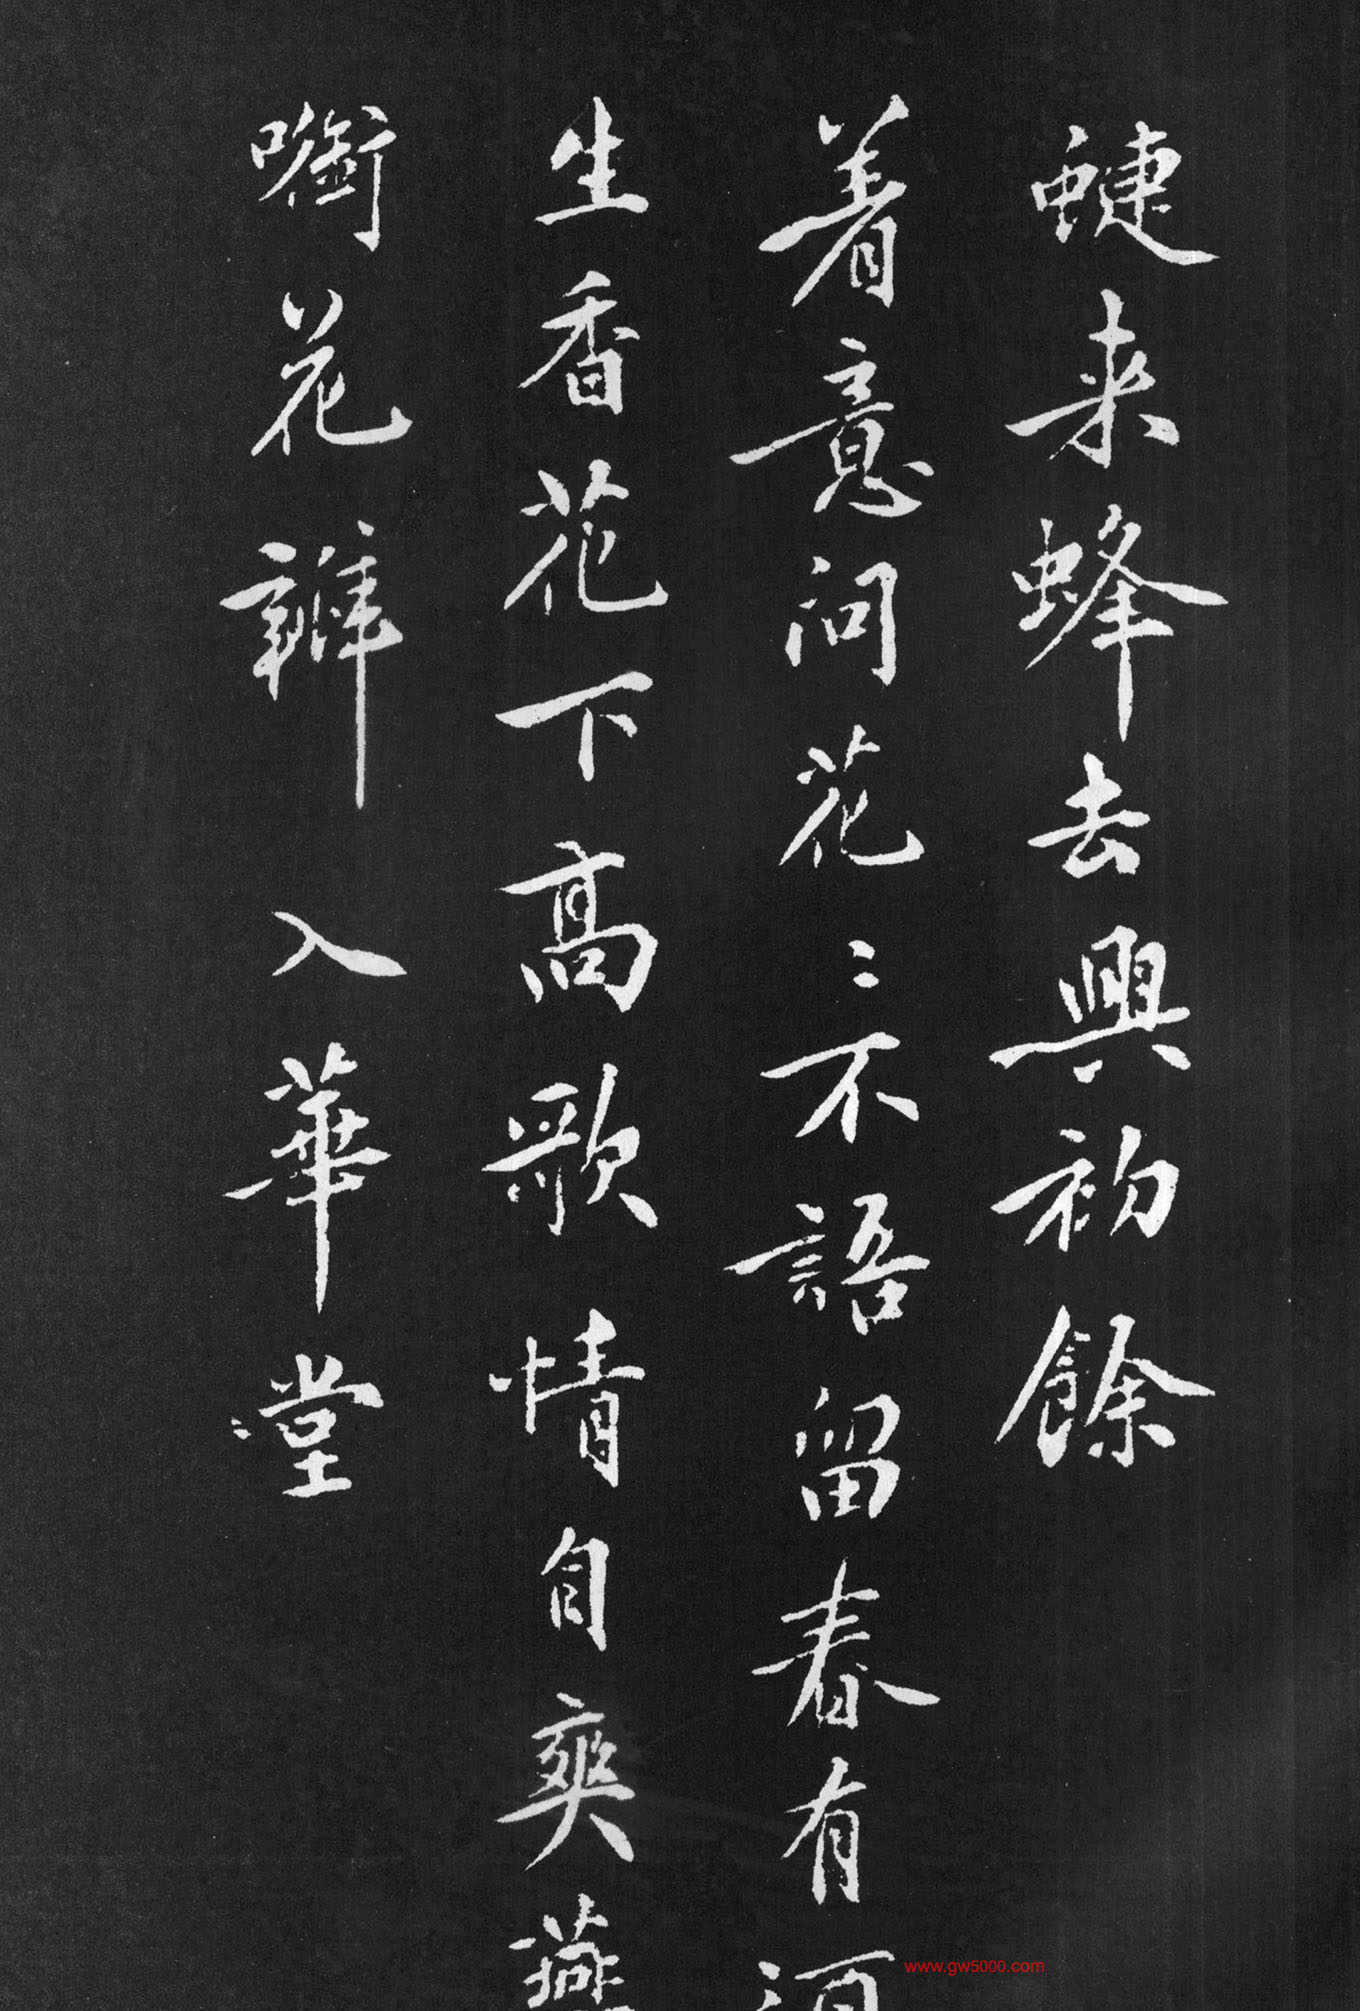 蜨来蜂去興初餘
着意问花〻不語留春有酒
生香花下高歌情自爽燕
啣花瓣入華堂
www.gw5000.com